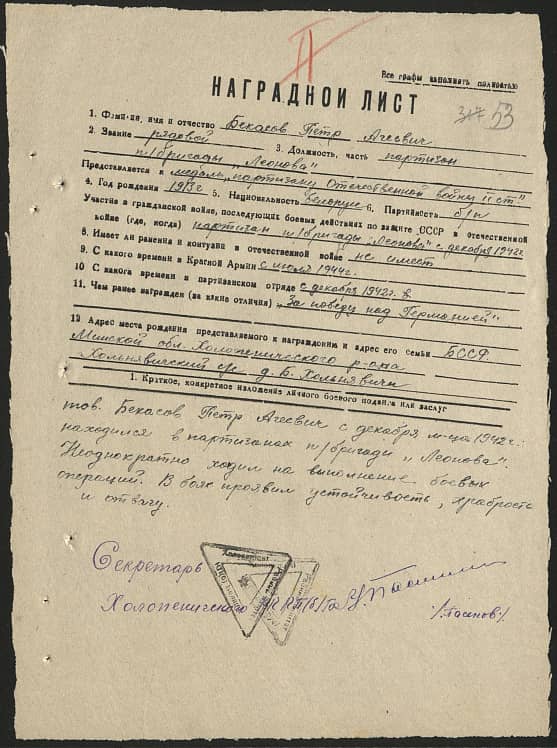 II
Все графы заполнять полностью
НАГРАДНОЙ ЛИСТ
317 53
1. Фамилия, имя и отчество Бекасов Петр Агеевич
2. Звание рядовой 3. Должность, часть партизан
п/бригады „Леонова"
Представляется к медали „партизану Отечественной войны II ст"
4. Год рождения 1913г 5. Национальность белорус 6. Партийность б/п
Участие в гражданской войне, последующих боевых действиях по защите СССР в отечественной
войне (где, когда) партизан п/бригады „Леонова" с декабря 1942г
8. Имеет ли ранения и контузии в отечественной войне не имеет
9. С какого времени в Красной Армии с июля 1944г.
10 С какога времени в партизанском отряде с декабря 1942г.
11. Чем ранее награжден (за какие отличия) „За победу над Германией"
12 Адрес места рождения представляемого к награждению и адрес его семьи БССР
Минской обл. Холопеничского р-она
Хольнявичский с/с д. Б. Хольнявичи
1. Краткое, конкретное изложение личного боевого подвига или заслуг
тов. Бекасов Петр Агеевич с декабря м-ца 1942г.
находился в партизанах п/бригады „Леонова".
Неоднократно ходил на выполнение боевых
операций. В боях проявил устойчивость, храбрость
и отвагу.
Секретарь
Холопеничского РК КП(б)Б